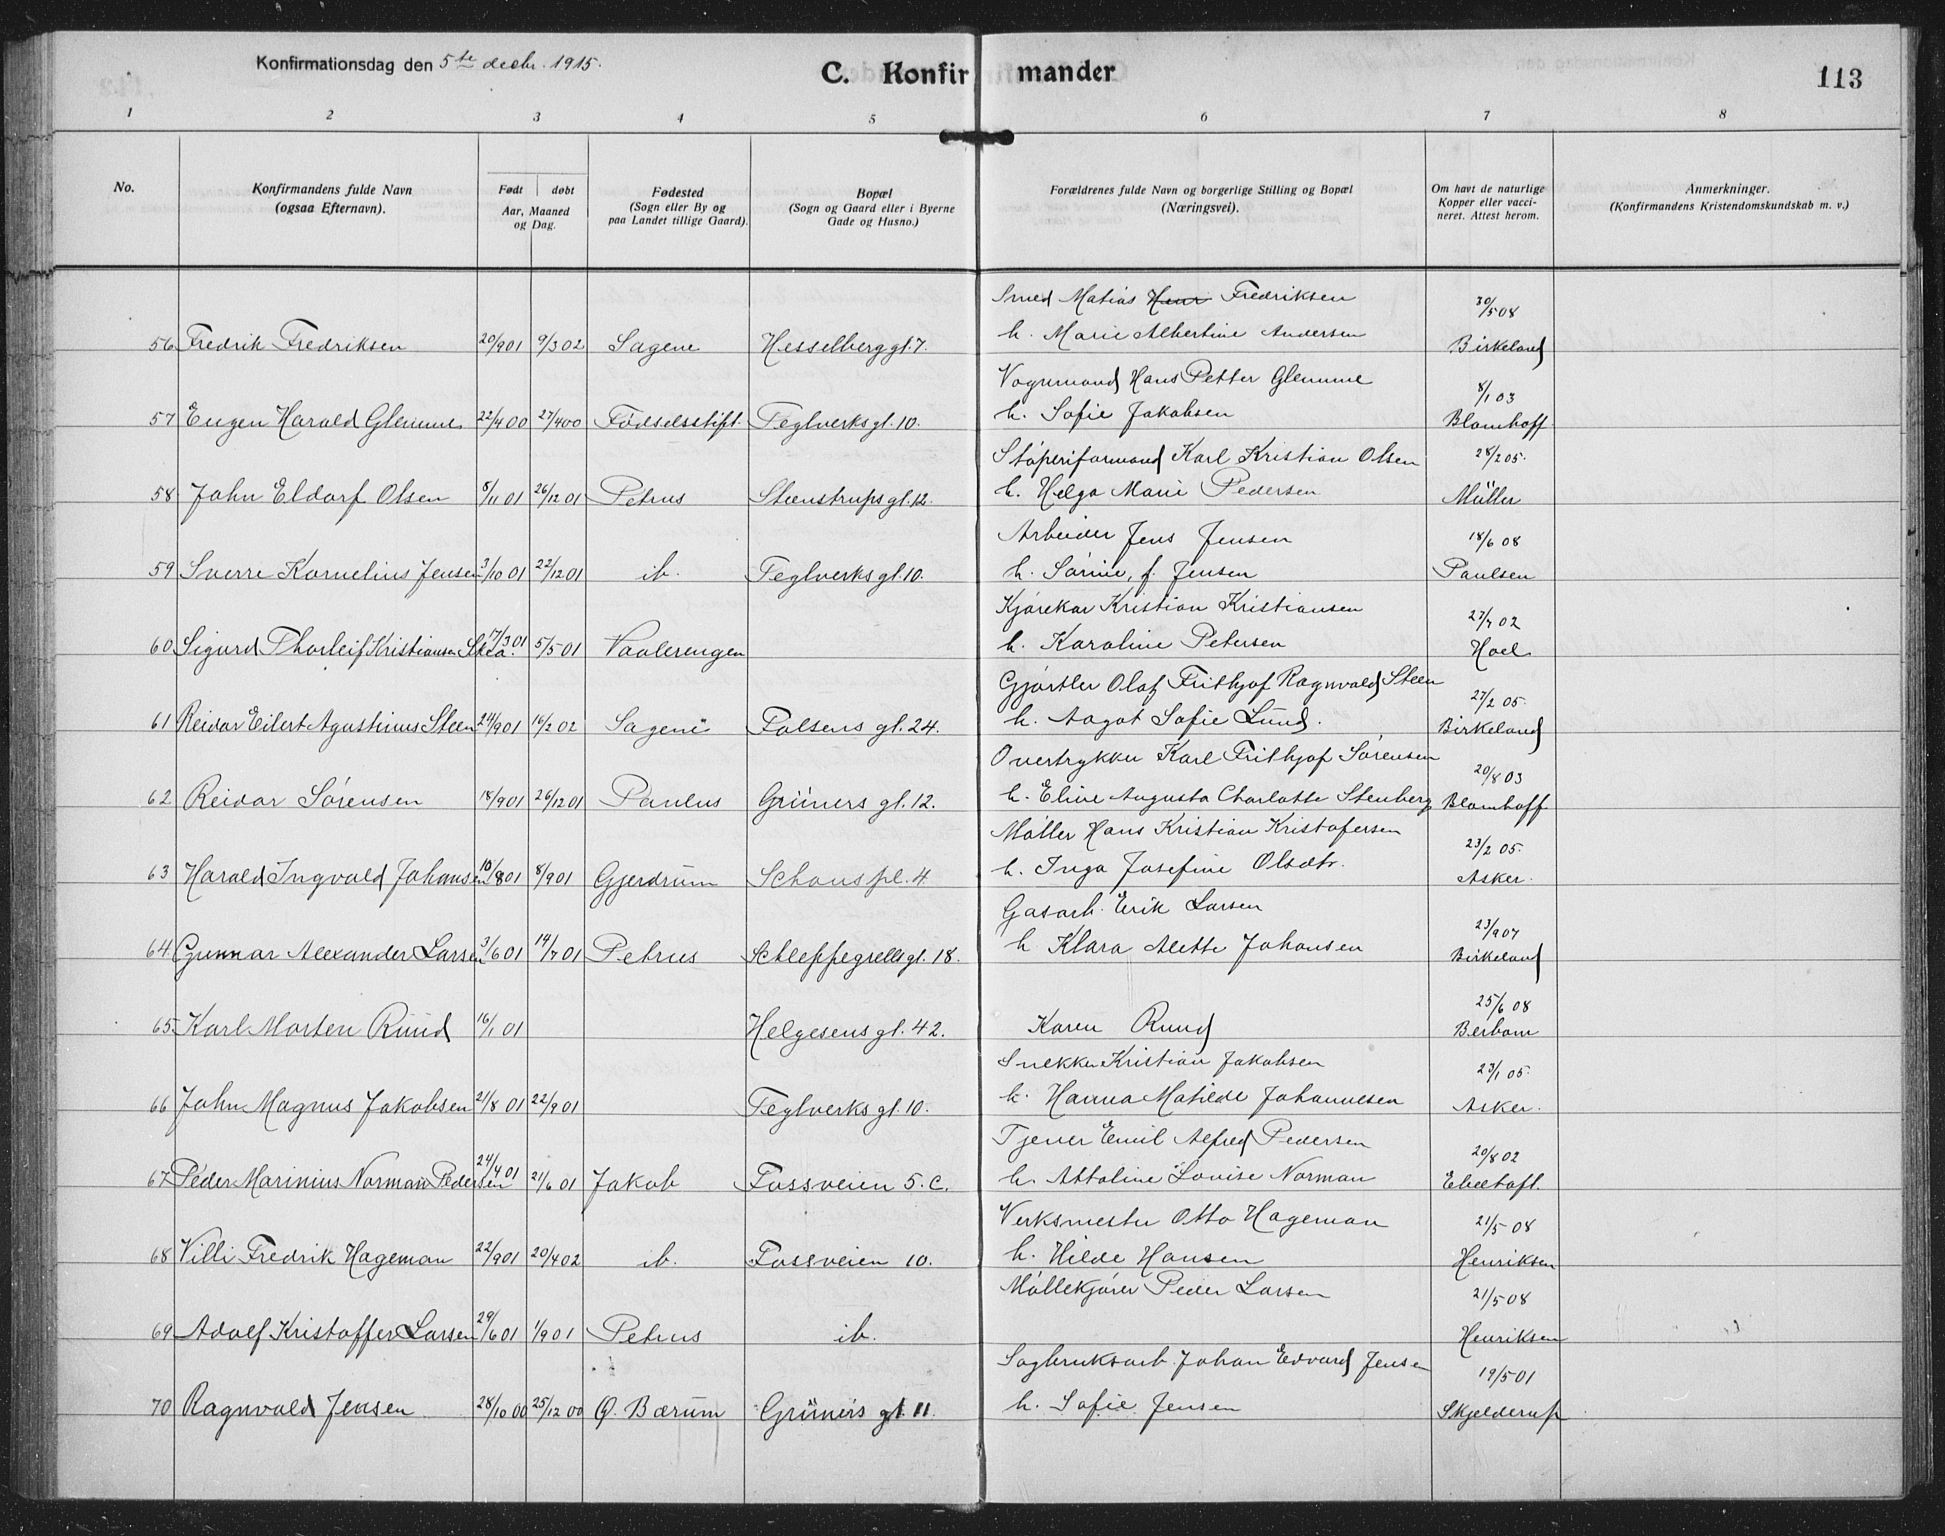 Konfirmationsdag den 5te decbr. 1915.
C. Konfirmander
113
1 2 3 4 5 6 7 8
No.
Konfirmandens fulde Navn
(ogsaa Efternavn).
Født døbt
Aar, Maaned
og Dag.
Fødested
(Sogn eller By og
paa Landet tillige Gaard).
Bopæl
(Sogn og Gaard eller i Byerne
Gade og Husno.)
Forældrenes fulde Navn og borgerlige Stilling og Bopæl
(Næringsvei).
Om havt de naturlige
Kopper eller vacci-
neret. Attest herom.
Anmerkninger.
(Konfirmandens Kristendomskundskab m. v.)
Smed Matias Henr Fredriksen 30/5 08
56 Fredrik Fredriksen 20/9 01 9/3 02 Sagene Hesselberggt. 7. h. Marie Albertine Andersen Birkeland
Vognmand Hans Petter Glemme 8/1 03
57 Eugen Harald Glemme 22/4 00 27/4 00 Fødselsstift. Teglverksgt. 10. h. Sofie Jakobsen Blomhoff
Støperiformand Karl Kristian Olsen 28/2 05.
58 John Eldorf Olsen 8/11 01 26/12 01 Petrus Steenstrupsgt. 12. h. Helga Marie Pedersen Müller
Arbeider Jens Jensen 18/6 08
59 Sverre Kornelius Jensen 3/10 01 22/12 01 ib. Teglverksgt. 10. h. Sørine, f. Jensen Paulsen
Kjørekar Kristian Kristiansen 23/7 02
60 Sigurd Thorleif Kristiansen Skea. 17/3 01 5/5 01 Vaalerengen h. Karoline Petersen Hoel
Gjørtler Olaf Frithjof Ragnvald Steen 27/2 05.
61 Reidar Eilert Agathinus Steen 24/9 01 16/2 02 Sagene Falsens gt. 24. h. Aagot Sofie Lund. Birkeland
Overtrykker Karl Frithjof Sørensen 20/8 03
62 Reidar Sørensen 18/9 01 26/12 01 Paulus Grüners gt. 12. h. Eline Augusta Charlotte Stenberg Blomhoff
Møller Hans Kristian Kristofersen 23/2 05.
63 Harald Ingvald Johansen 10/8 01 8/9 01 Gjerdrum Schous pl. 4. h. Inga Josefine Olsdtr. Asker.
Gasarb. Erik Larsen 23/9 07
64 Gunnar Alexander Larsen 3/6 01 14/7 01 Petrus Schleppegrellsgt. 18. h. Klara Alette Johansen Birkeland
25/6 08
65 Karl Morten Ruud 16/1 01 Helgesens gt. 42. Karen Ruud Berbom
Snekker Kristian Jakobsen 23/1 05.
66 John Magnus Jakobsen 21/8 01 22/9 01 Teglverks gt. 10. h. Hanna Matilde Johannesen Asker.
Tjener Emil Alfred Pedersen 20/8 02
67 Peder Marinius Norman Pedersen 24/4 01 21/6 01 Jakob Fossveien 5. C. h. Attaline Lovise Norman
Verksmester Otto Hageman 21/5 08
68 Villi Fredrik Hageman 22/9 01 20/4 02 ib. Fossveien 10. h. Hilde Hansen Henriksen
Møllekjører Peder Larsen 21/5 08
69 Adolf Kristoffer Larsen 29/6 01 1/9 01 Petrus ib. Henriksen
Sagbruksarb. Johan Edvard Jensen 19/5 01
70 Ragnvald Jensen 28/10 00 25/12 00 Ø. Bærum Grüners gt. 11. h. Sofie Jensen Skjelderup